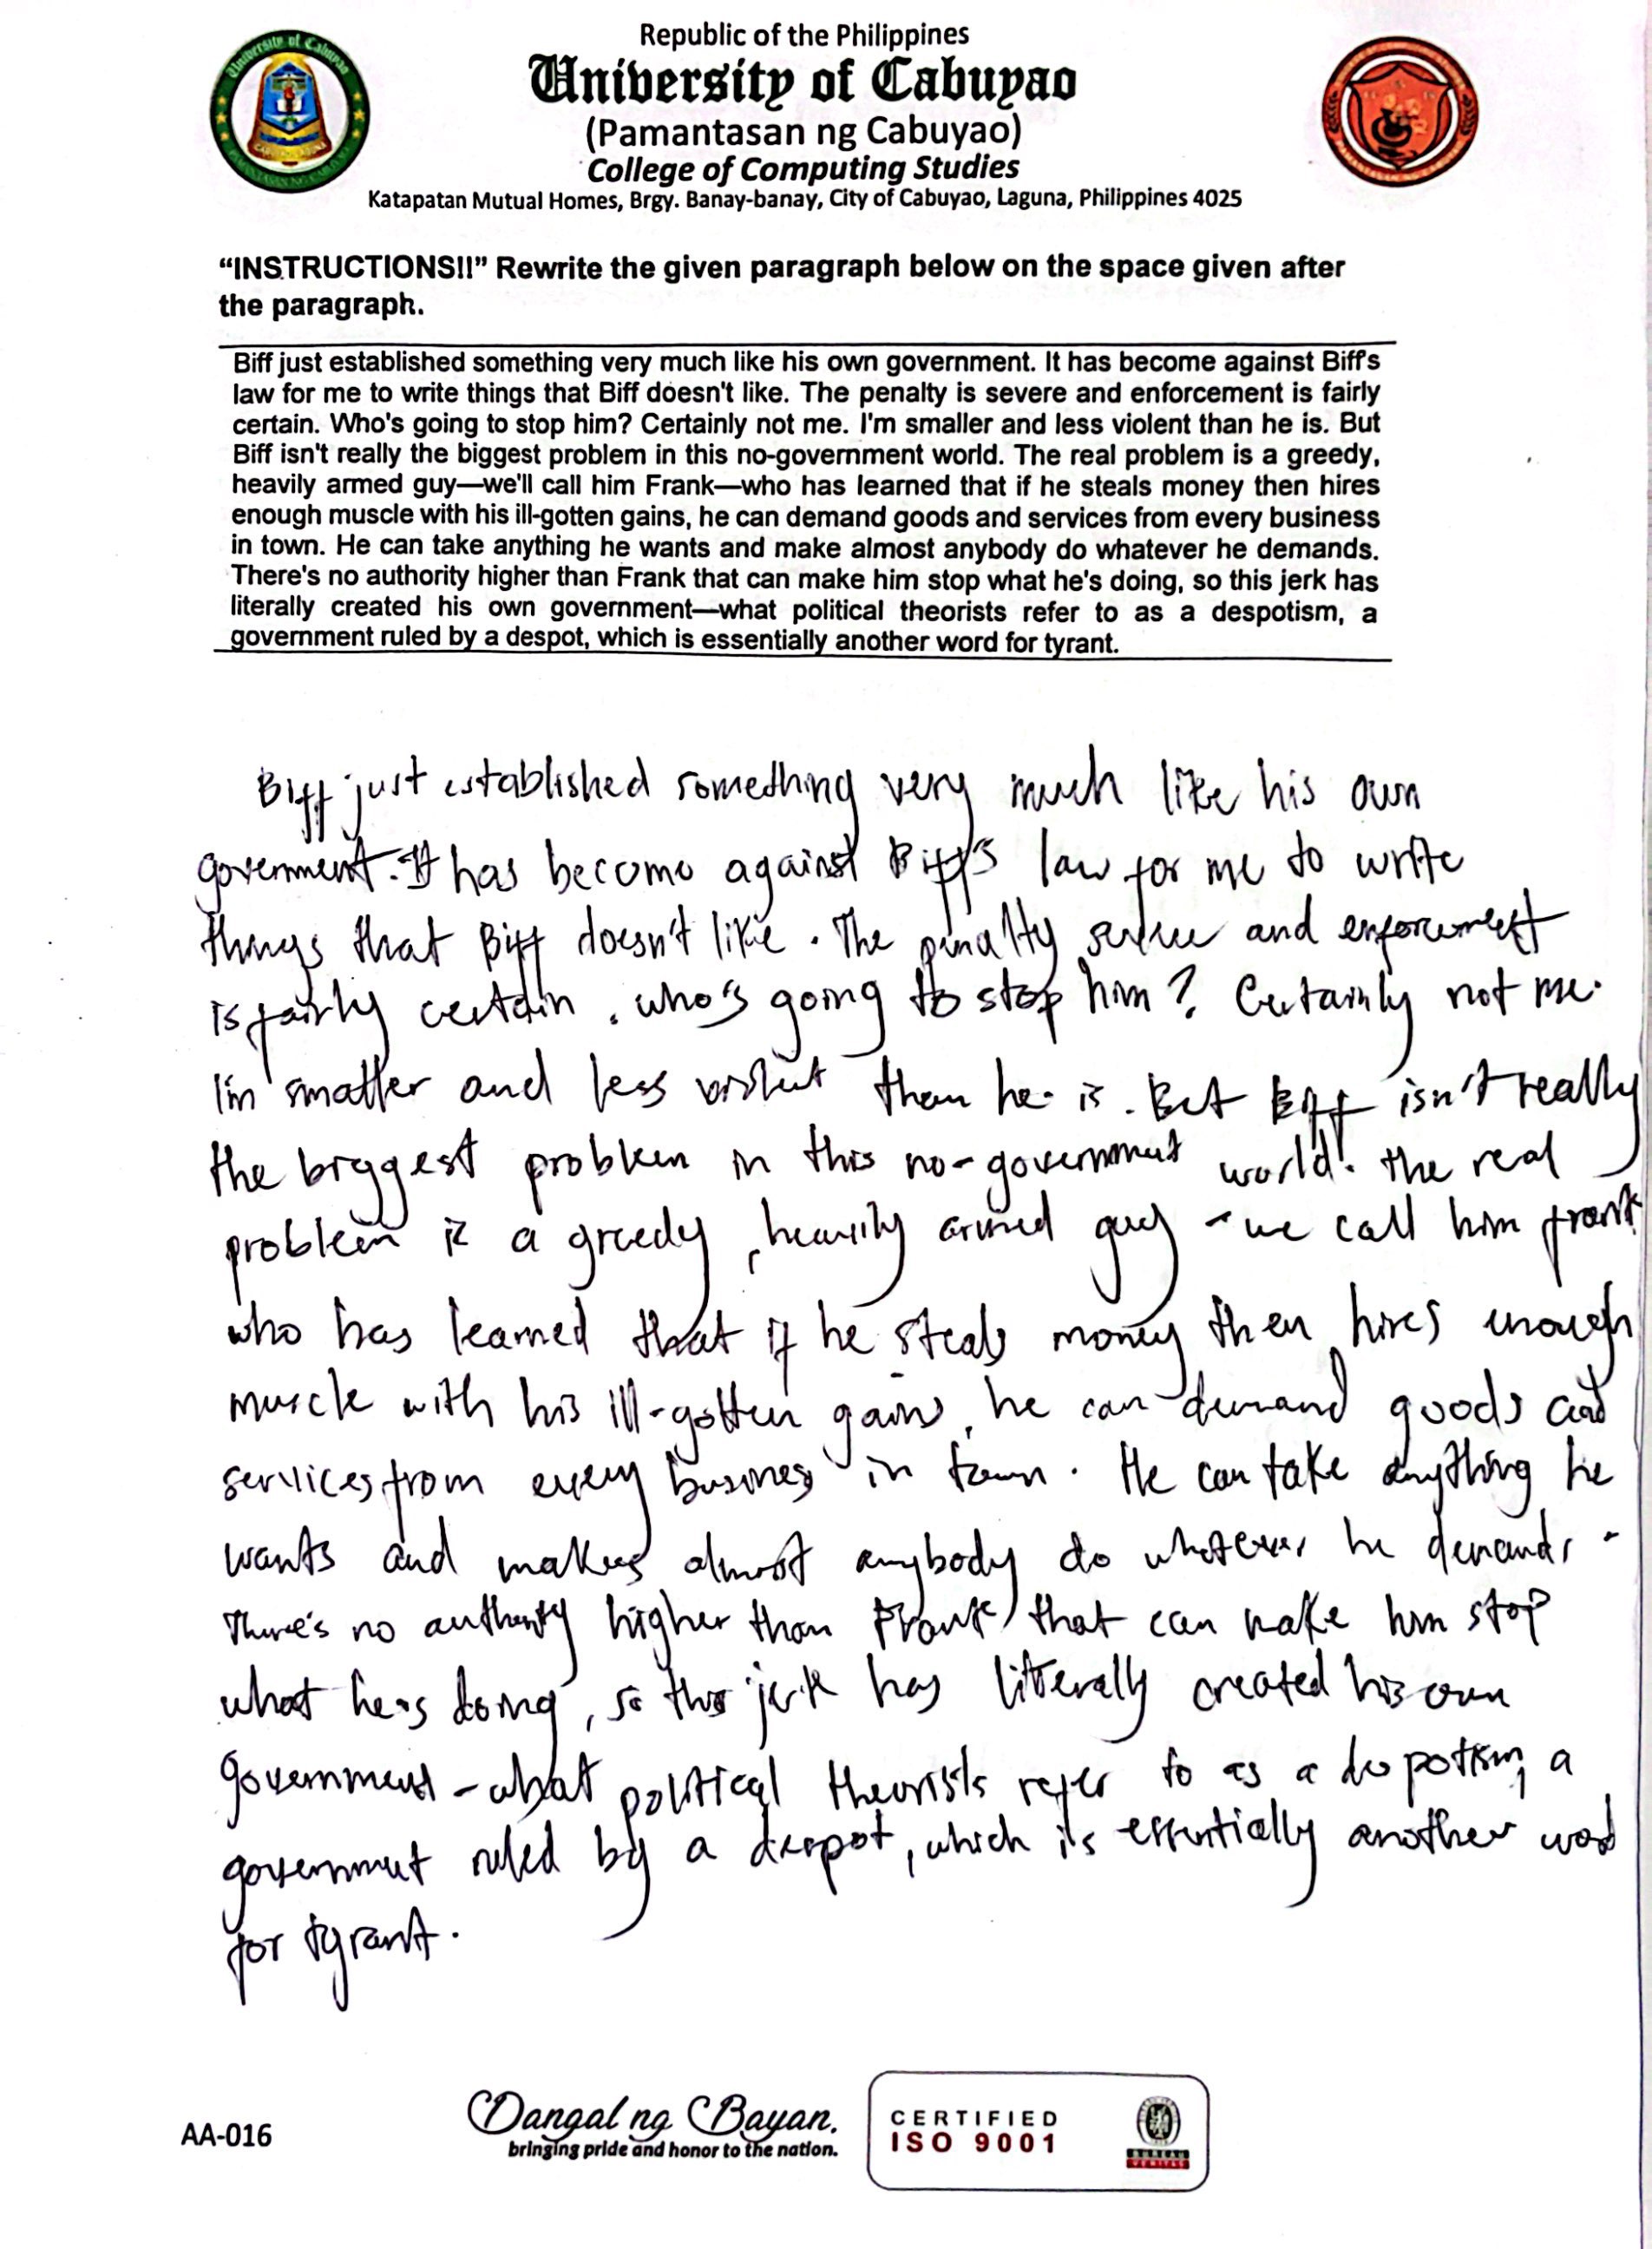 Republic of the Philippines
University of Cabuyao
(Pamantasan ng Cabuyao)
College of Computing Studies
Katapatan Mutual Homes, Brgy. Banay-banay, City of Cabuyao, Laguna, Philippines 4025
“INSTRUCTIONS!!” Rewrite the given paragraph below on the space given after
the paragraph.
Biff just established something very much like his own government. It has become against Biff's
law for me to write things that Biff doesn't like. The penalty is severe and enforcement is fairly
certain. Who's going to stop him? Certainly not me. I'm smaller and less violent than he is. But
Biff isn't really the biggest problem in this no-government world. The real problem is a greedy,
heavily armed guy—we'll call him Frank—who has learned that if he steals money then hires
enough muscle with his ill-gotten gains, he can demand goods and services from every business
in town. He can take anything he wants and make almost anybody do whatever he demands.
There's no authority higher than Frank that can make him stop what he's doing, so this jerk has
literally created his own government—what political theorists refer to as a despotism, a
government ruled by a despot, which is essentially another word for tyrant.
Biff just established something very much like his own
government. It has become against Biff's law for me to write
things that Biff doesn't like. The penalty severe and enforcement
is fairly certain. who's going to stop him? Certainly not me.
I'm smaller and less violent than he is. But Biff isn't really
the biggest problem in this no-government world. the real
problem is a greedy, heavily armed guy - we call him frank
who has learned that if he steals money then hires enough
muscle with his ill-gotten gains, he can demand goods and
services from every business in town. He can take anything he
wants and makes almost anybody do whatever he demands.
There's no authority higher than Frank that can make him stop
what he's doing, so this jerk has literally created his own
government - what political theorists refer to as a despotism, a
government ruled by a despot, which is essentially another word
for tyrant.
AA-016
Dangal ng Bayan.
bringing pride and honor to the nation.
CERTIFIED
ISO 9001
BUREAU
VERITAS